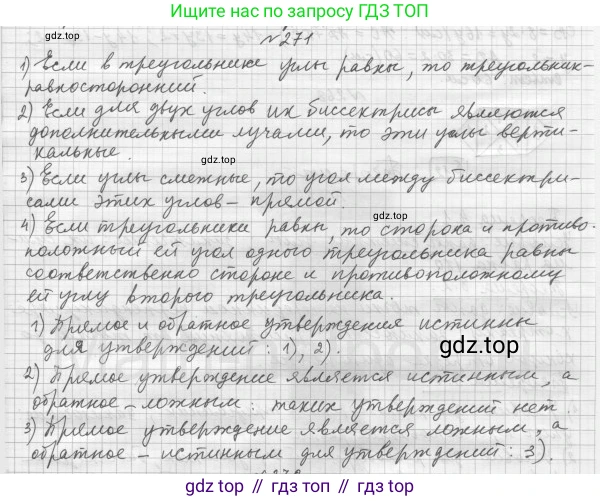 Ищите нас по запросу ГДЗ ТОП
№271
1) Если в треугольнике углы равны, то треугольник-
равносторонний.
2) Если для двух углов их биссектрисы являются
дополнительными лучами, то эти углы верти-
кальные.
3) Если углы смежные, то угол между биссектри-
сами этих углов - прямой.
4) Если треугольники равны, то сторона и противо-
положный ей угол одного треугольника равны
соответственно стороне и противоположному
ей углу второго треугольника.
1) Прямое и обратное утверждения истинны
для утверждений: 1), 2).
2) Прямое утверждение является истинным, а
обратное - ложным: таких утверждений нет.
3) Прямое утверждение является ложным, а
обратное - истинным для утверждений: 3).
gdz.top
gdz.top
gdz.top
gdz.top
gdz.top // gdz.top // gdz.top // gdz.top